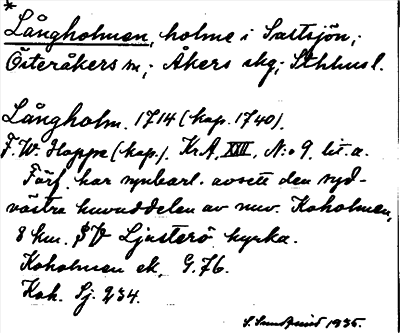 *
Långholmen, holme i Saltsjön;
Österåkers sn; Åkers skg; Sthlms l.
Långholm. 1714 (kop. 1740).
F.W. Hoppe (kop.). Kr.A. XIII, N:o 9, lit. a.
Förf. har synbarl. avsett den syd-
västra huvuddelen av nuv. Koholmen,
8 km. SV Ljusterö kyrka.
Koholmen ek. G.76.
Kok. Sj. 234.
1935.